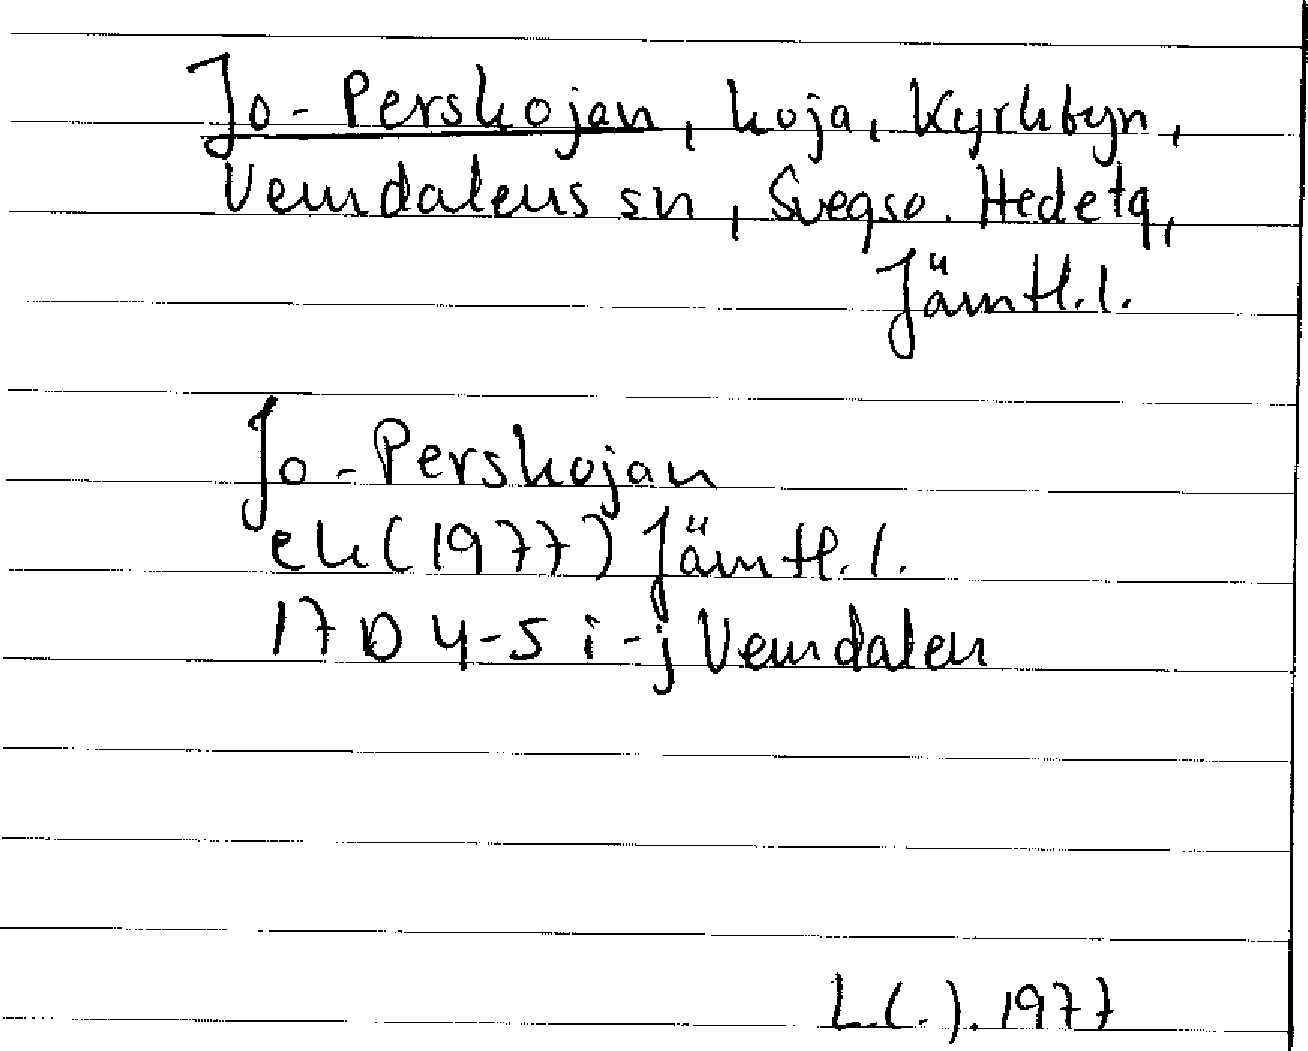 Jo-Perskojan, koja, Kyrkbyn,
Vemdalens sn, Svegso. Hedetg,
Jämtl.l.
Jo-Perskojan
ek (1977) Jämtl.l.
17D 4-5 i-j Vemdalen
L.(.). 1977